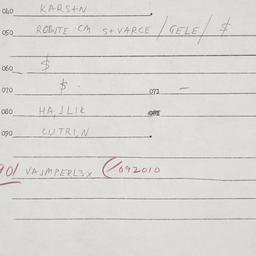 040 KARSTN
050 ROENTE CM S+VARCE / GELE / $
060 $
070 $. 071 –
080 HAJLIK 081
090 CUTRIN
901 VAJMPERL3X (/092010